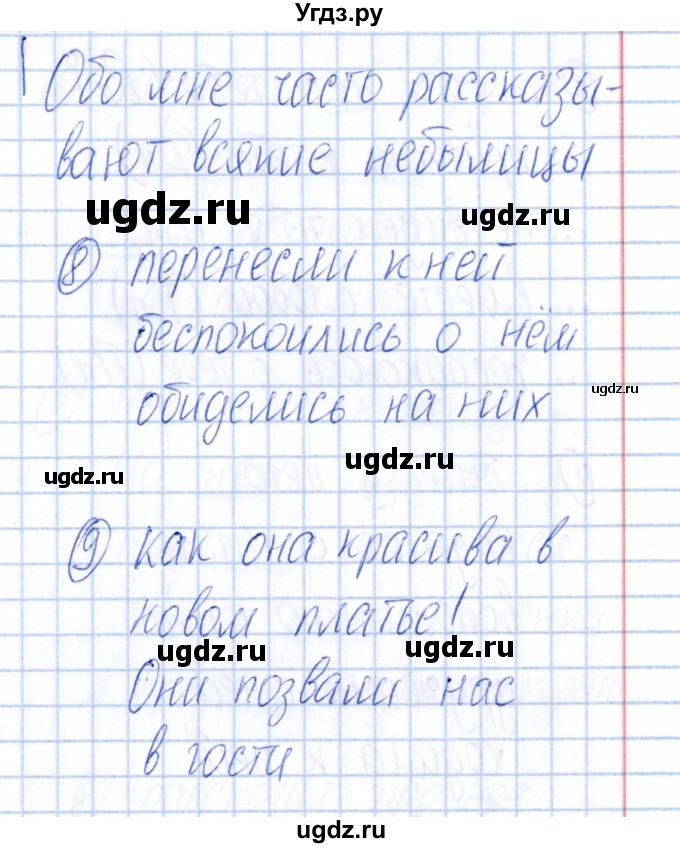 Угдз.ру
Обо мне часто рассказы-
вают всякие небылицы
ugdz.ru ugdz.ru
8 перенесли к ней
беспокоились о нём
ugdz.ru
обиделись на них
ugdz.ru
ugdz.ru
9 как она красива в
новом платье!
ugdz.ru ugdz.ru
Они позвали нас
в гости
ugdz.ru